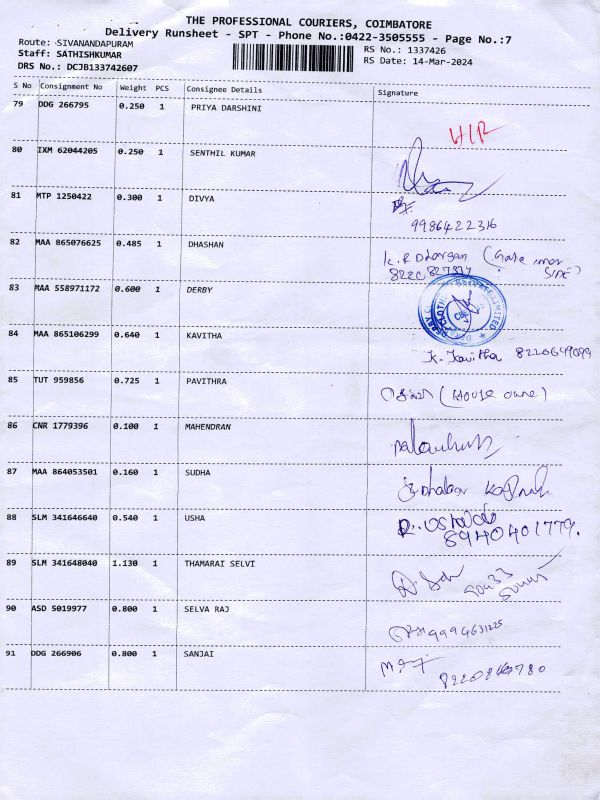 THE PROFESSIONAL COURIERS, COIMBATORE
Delivery Runsheet - SPT - Phone No.:0422-3505555 - Page No.:7
Route: SIVANANDAPURAM
Staff: SATHISHKUMAR
DRS No.: DCJB133742607
RS No.: 1337426
RS Date: 14-Mar-2024
S No Consignment No Weight PCS Consignee Details Signature
79 DDG 266795 0.250 1 PRIYA DARSHINI
80 IXM 62044205 0.250 1 SENTHIL KUMAR
81 MTP 1250422 0.300 1 DIVYA
9986422316
82 MAA 865076625 0.485 1 DHASHAN
83 MAA 558971172 0.600 1 DERBY
84 MAA 865106299 0.640 1 KAVITHA
K. Kavitha 8220649099
85 TUT 959856 0.725 1 PAVITHRA
(House owner)
86 CNR 1779396 0.100 1 MAHENDRAN
87 MAA 864053501 0.160 1 SUDHA
88 SLM 341646640 0.540 1 USHA
8940401779.
89 SLM 341648040 1.130 1 THAMARAI SELVI
90 ASD 5019977 0.800 1 SELVA RAJ
9994631225
91 DDG 266906 0.800 1 SANJAI